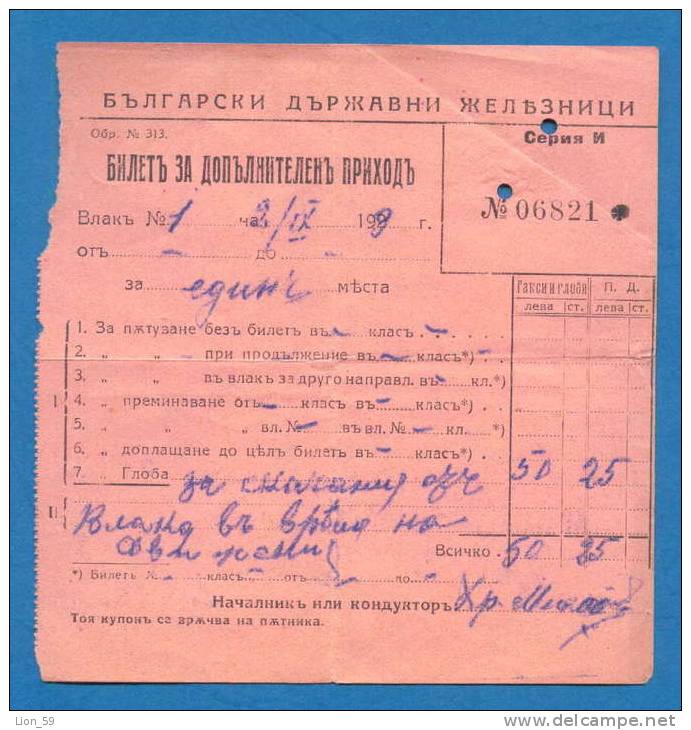 БЪЛГАРСКИ ДЪРЖАВНИ ЖЕЛѢЗНИЦИ
Обр. № 313.
Серия И
БИЛЕТЪ ЗА ДОПЪЛНИТЕЛЕНЪ ПРИХОДЪ
№ 06821
Влакъ № 1 на /IX 19 г.
отъ - до -
за единъ мѣста
Такси и глоби П. Д.
лева ст. лева ст.
1. За пѫтуване безъ билетъ въ - класъ -
2. „ „ - при продължение въ - класъ*) -
3. „ „ въ влакъ за друго направл. въ - кл.*)
I 4. „ преминаване отъ - класъ въ - класъ*)
5. „ „ „ вл. № - въ вл. № - кл. *)
6. „ доплащане до цѣлъ билетъ въ - класъ*)
7. „ Глоба за скачание отъ 50 25
II влака въ врѣме на
движение Всичко 50 25
*) Билетъ № - класъ - отъ - до -
Началникъ или кондукторъ Хр.
Тоя купонъ се врѫчва на пѫтника.
Lion_59
delcampe.net